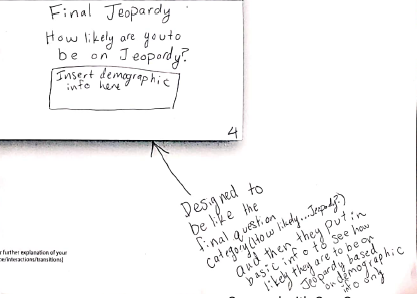 Final Jeopardy
How likely are you to
be on Jeopordy?
Insert demographic
info here
4
Designed to
be like the
final question
category (How likely...Jeopardy?)
and then they put in
basic info to see how
likely they are to be on
Jeopardy based
on demographic
info only
r further explanation of your
ce/interactions/transitions]